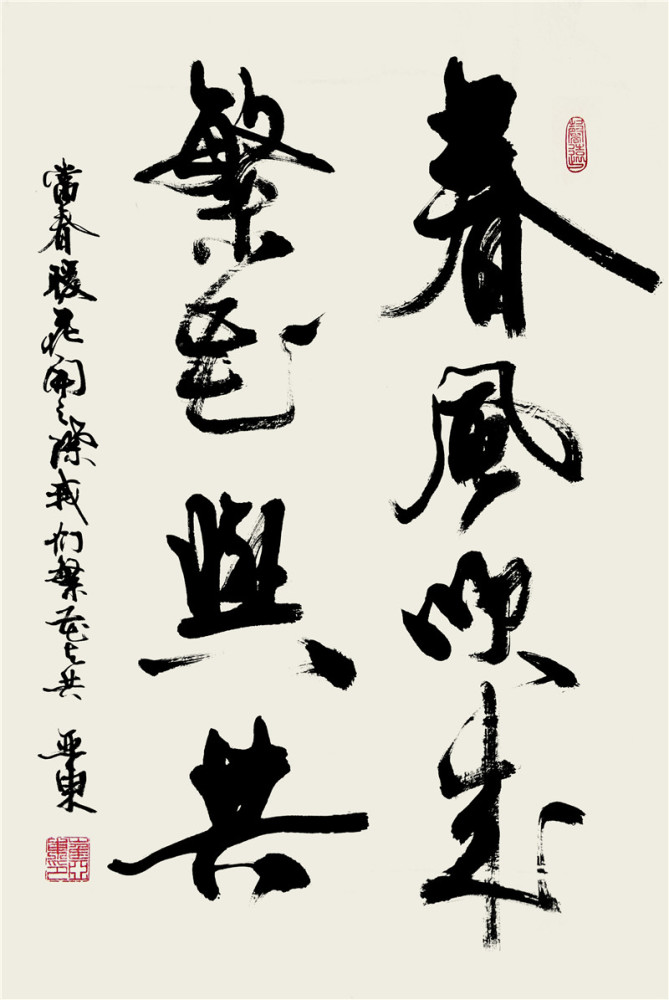 春風吹來
繁花與共
當春暖花開之際我们繁花与共 亚東